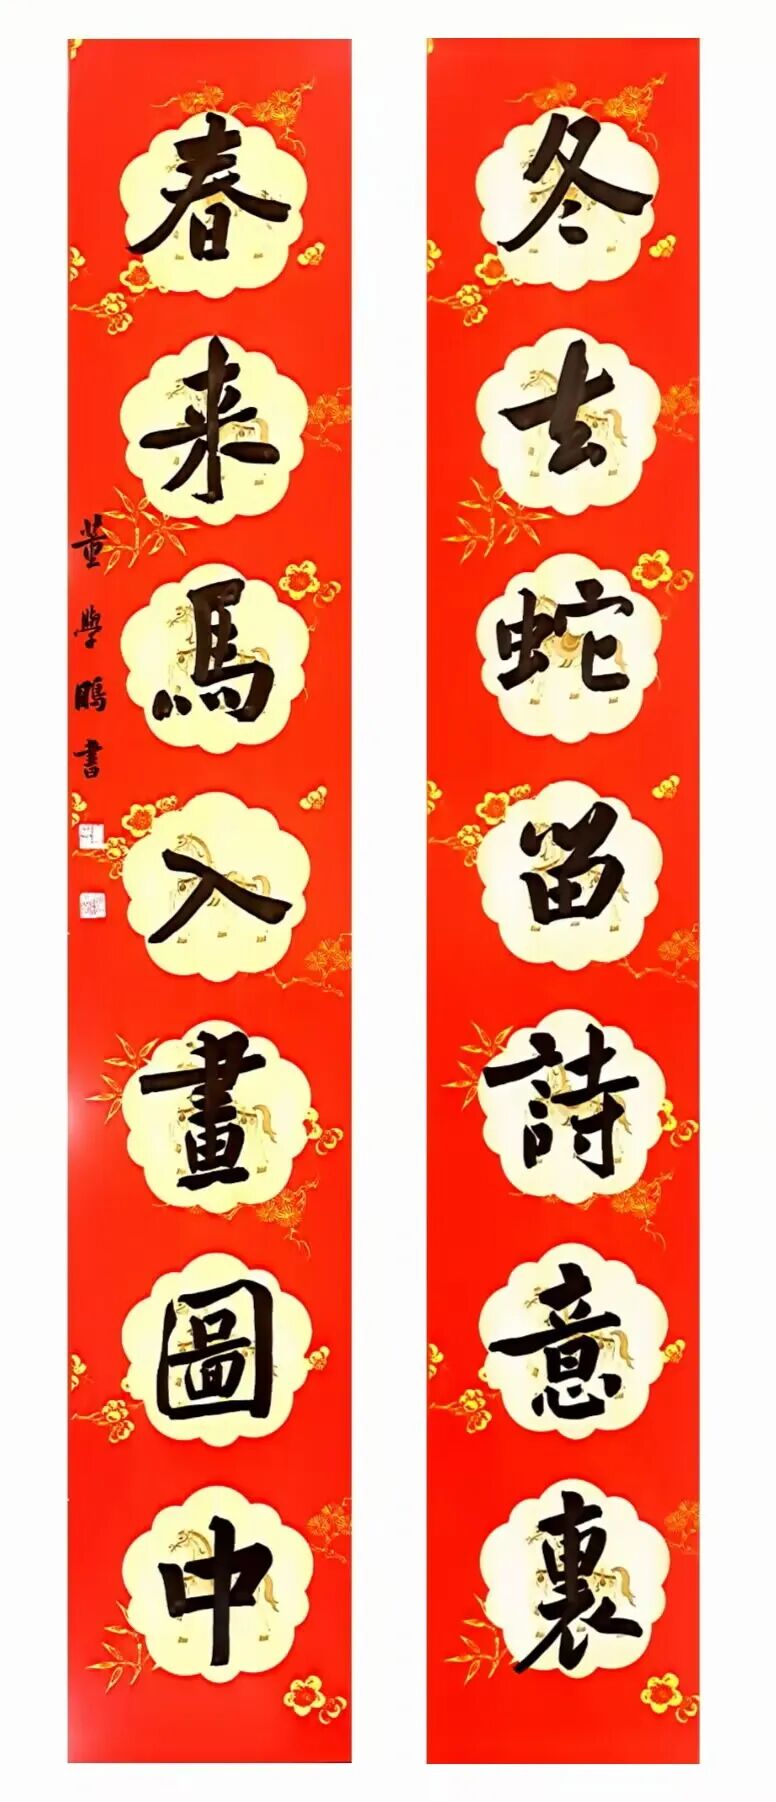 冬去蛇留詩意裏
春来馬入畫圖中
董學鵬書